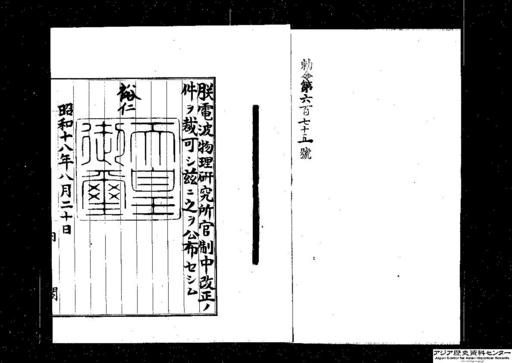 勅令第六百七十五號
朕電波物理研究所官制中改正ノ
件ヲ裁可シ玆ニ之ヲ公布セシム
裕仁
天皇
御璽
昭和十八年八月二十日
内閣
アジア歴史資料センター
Japan Center for Asian Historical Records